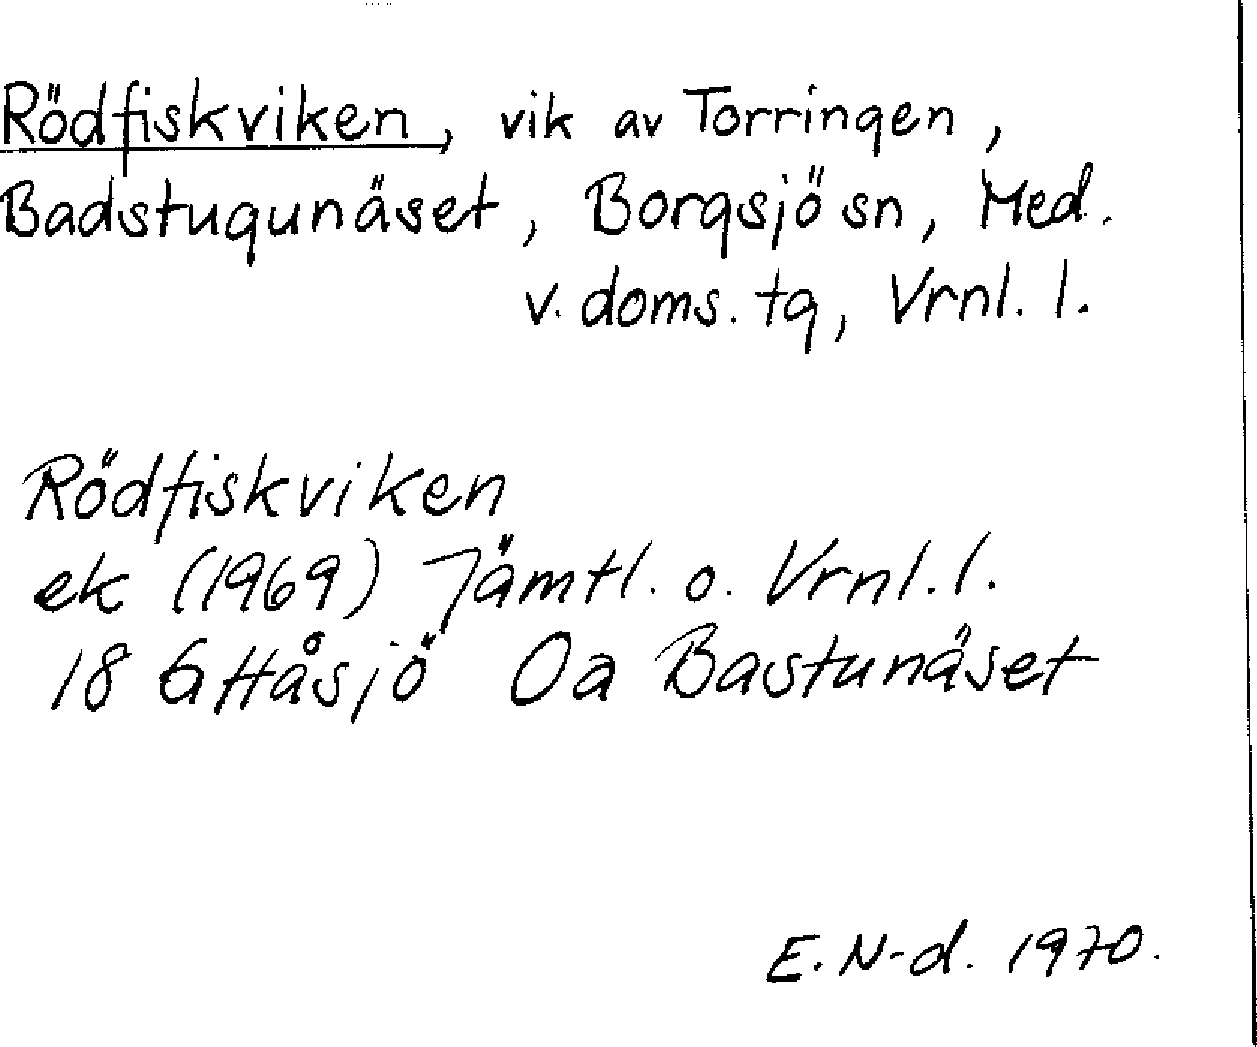 Rödfiskviken, vik av Torringen,
Badstugunäset, Borgsjö sn, Med.
v. doms. tg, Vrnl. l.
Rödfiskviken
ek (1969) Jämtl. o. Vrnl. l.
18 G Håsjö Oa Bastunäset
E. N-d. 1970.